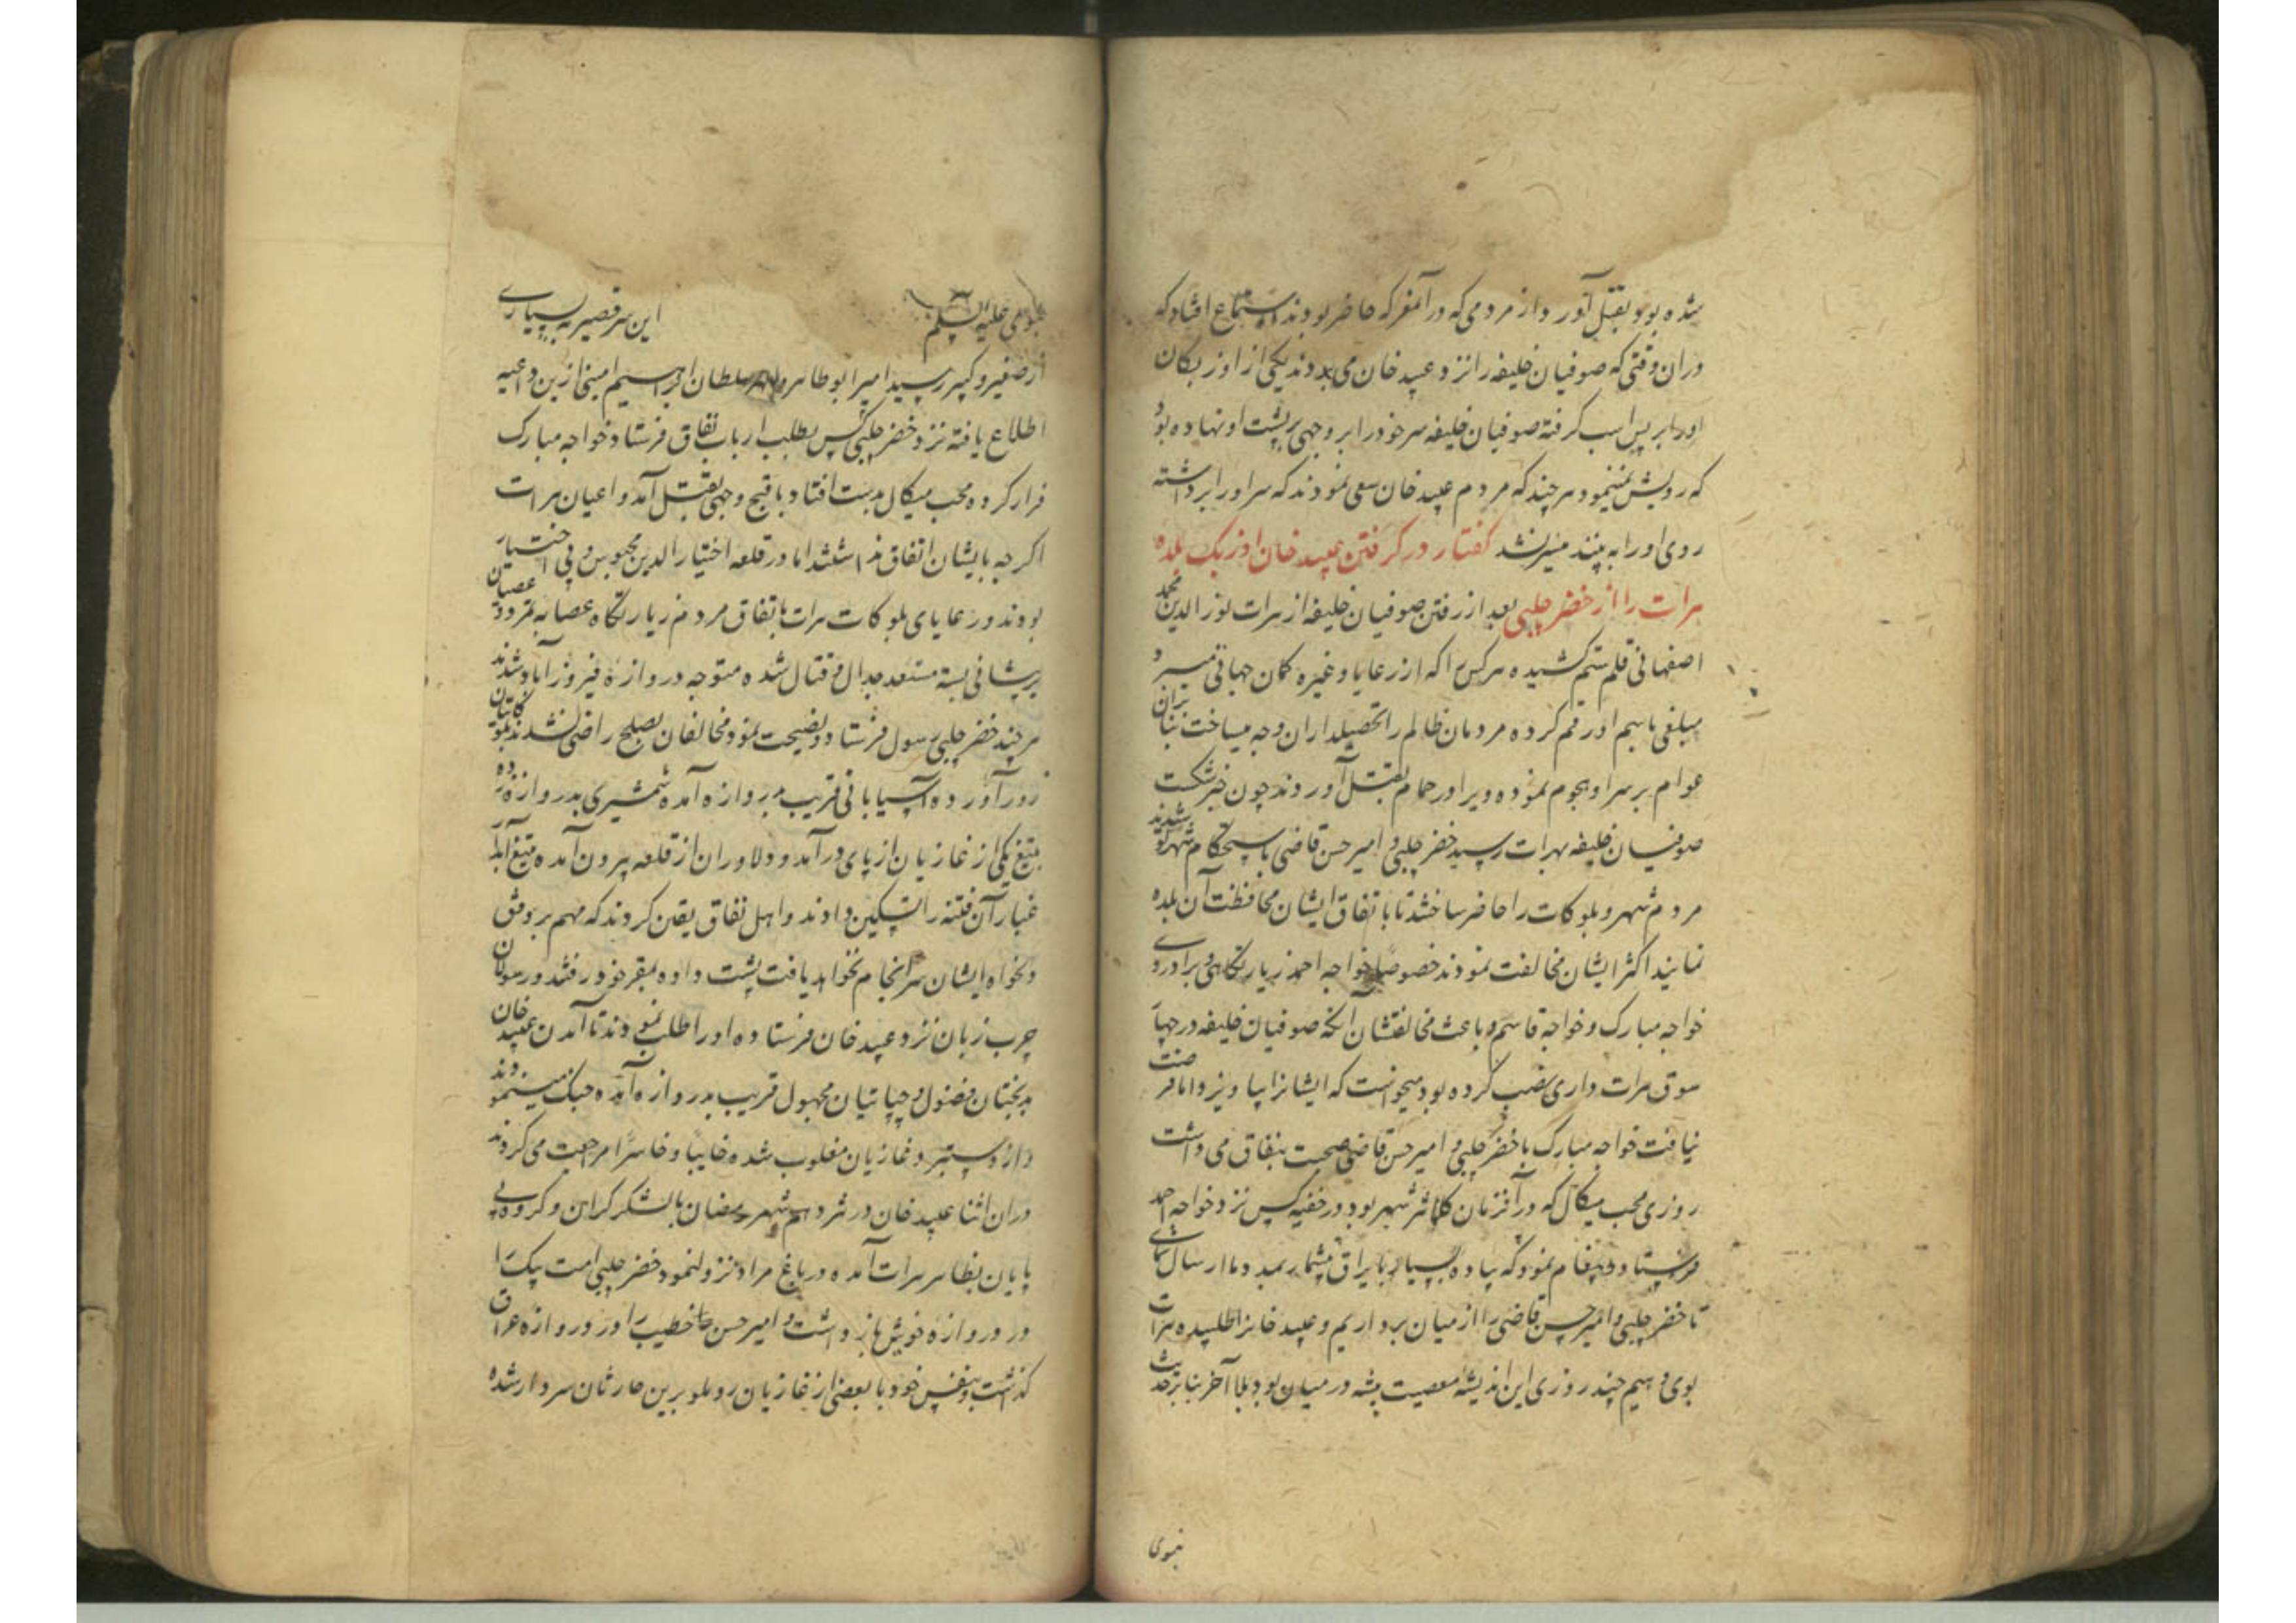 شده بود بقتل آورد و از مردمی که در آنمعرکه حاضر بودند استماع افتاد که
دران وقتی که صوفیان خلیفه را نزد عبید خان می بردند یکی از اوزبکان
او را بر پس اسب گرفته صوفیان خلیفه سر خود را بر وجهی بر پشت او نهاده بود
که رویش نمینمود هر چند که مردم عبید خان سعی نمودند که سر او را برداشته
روی او را به بینند میسر نشد گفتار در گرفتن عبید خان اوزبک بلده
هرات را از خضر چلبی بعد از رفتن صوفیان خلیفه از هرات نور الدین محمد
اصفهانی قلم ستم کشیده هر کس را که از رعایا و غیره گمان جهاتی میبرد
مبلغی باسم او رقم کرده مردمان ظالم را تحصیلداران وجه میساخت بنا بران
عوام بر سر او هجوم نموده ویرا در حمام بقتل آوردند چون خبر شکست
صوفیان خلیفه بهرات رسید خضر چلبی و امیر حسن قاضی باستحکام شهر شدند
مردم شهر و بلوکات را حاضر ساختند تا باتفاق ایشان محافظت آن بلده
نمایند اکثر ایشان مخالفت نمودند خصوصا خواجه احمد زیارتگاهی و برادر وی
خواجه مبارک و خواجه قاسم و باعث مخالفتشان آنکه صوفیان خلیفه در چها
سوق هرات داری نصب کرده بود میخواست که ایشانرا بیاویزد اما فرصت
نیافت خواجه مبارک با خضر چلبی و امیر حسن قاضی صحبت بنفاق می داشت
روزی محب میکال که در آنزمان کلانتر شهر بود در خفیه کس نزد خواجه احمد
فرستاد و پیغام نمود که پیاده بسیار با یراق بیشمار بمدد ما ارسال نمای
تا خضر چلبی و امیر حسن قاضی را از میان برداریم و عبید خانرا طلبیده هرات
بوی دهیم چند روزی این اندیشه معصیت پیشه در میان بود بلا آخر بنا بر حدیث
نبوی
نبوی علیه السلم این سر قصیر به بسیاری
از صغیر و کبیر رسید امیر ابو طاهر و سلطان ابراهیم امینی ازین داعیه
اطلاع یافته نزد خضر چلبی کس بطلب ارباب نفاق فرستاد خواجه مبارک
فرار کرده محب میکال بدست افتاد باقبح وجهی بقتل آمد و اعیان هرات
اگر چه بایشان اتفاق نداشتند اما در قلعه اختیار الدین محبوس و بی اختیار
بودند و رعایای بلوکات هرات باتفاق مردم زیارتگاه عصابه تمرد و عصیان
بر پیشانی بسته مستعد جدال و قتال شده متوجه دروازه فیروزآباد شدند
هر چند خضر چلبی رسول فرستاد و نصیحت نمود مخالفان بصلح راضی نشدند بلوکاتیان
زور آورده آسیابانی قریب بدروازه آمده شمشیری بدروازه زده
بتیغ یکی از غازیان از پای درآمد و دلاوران از قلعه بیرون آمده بتیغ آبدار
غبار آن فتنه را تسکین دادند و اهل نفاق یقین کردند که مهم بر وفق
دلخواه ایشان سرانجام نخواهد یافت پشت داده بمقر خود رفتند و رسولان
چرب زبان نزد عبید خان فرستاده او را طلب نمودند تا آمدن عبید خان
بدبختان فضول و چپاتیان مجهول قریب بدروازه آمده جنگ مینمودند
و از دستبرد غازیان مغلوب شده خایبا و خاسرا مراجعت می کردند
دران اثنا عبید خان در شهر رمضان با لشکر گران و گروه بی
پایان بظاهر هرات آمده در باغ مراد نزول نمود خضر چلبی امت بیک را
در دروازه خوش باز داشت و امیر حسن خطیب را در دروازه عراق
گذاشت و بنفس خود با بعضی از غازیان روملو برین حارثان سردار شده